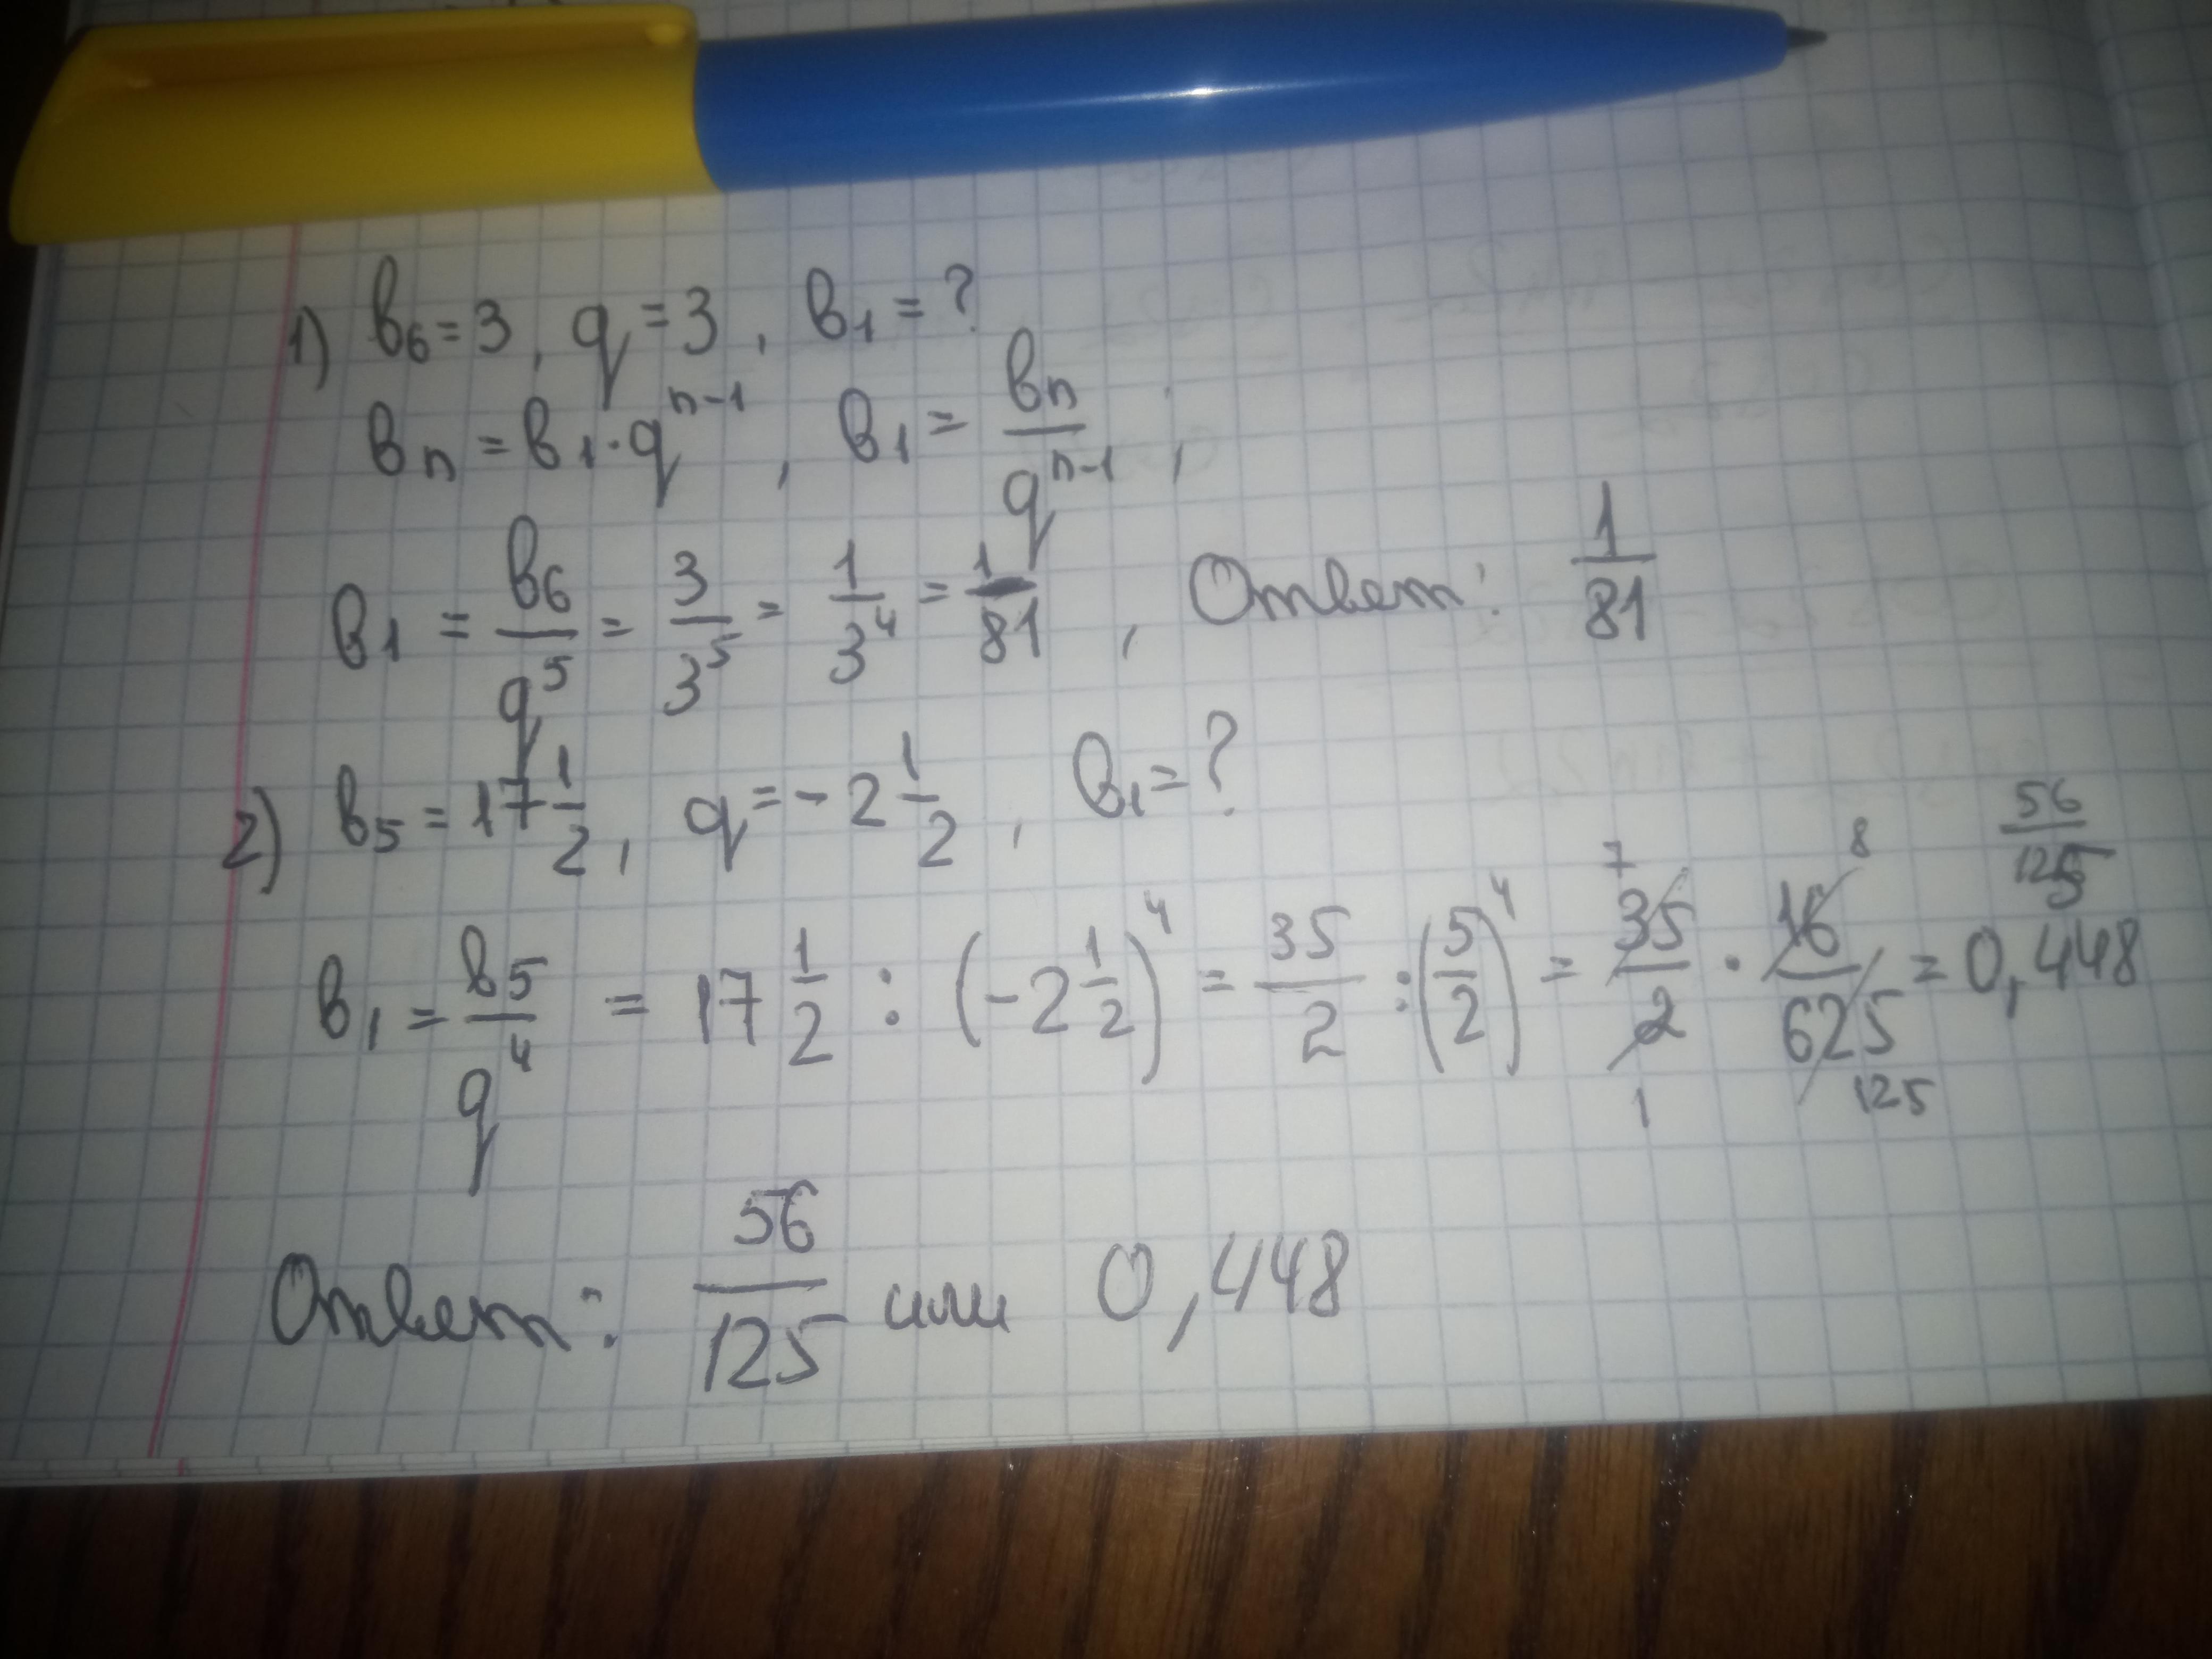 1) b₆ = 3, q = 3, b₁ = ?
bₙ = b₁ · qⁿ⁻¹, b₁ = bₙ / qⁿ⁻¹,
b₁ = b₆ / q⁵ = 3 / 3⁵ = 1 / 3⁴ = 1 / 81, Ответ: 1 / 81
2) b₅ = 17 1/2, q = -2 1/2, b₁ = ?
b₁ = b₅ / q⁴ = 17 1/2 : (-2 1/2)⁴ = 35/2 : (5/2)⁴ = 35/2 · 16/625 = 0,448
7 8 1 125
56/125
Ответ: 56/125 или 0,448